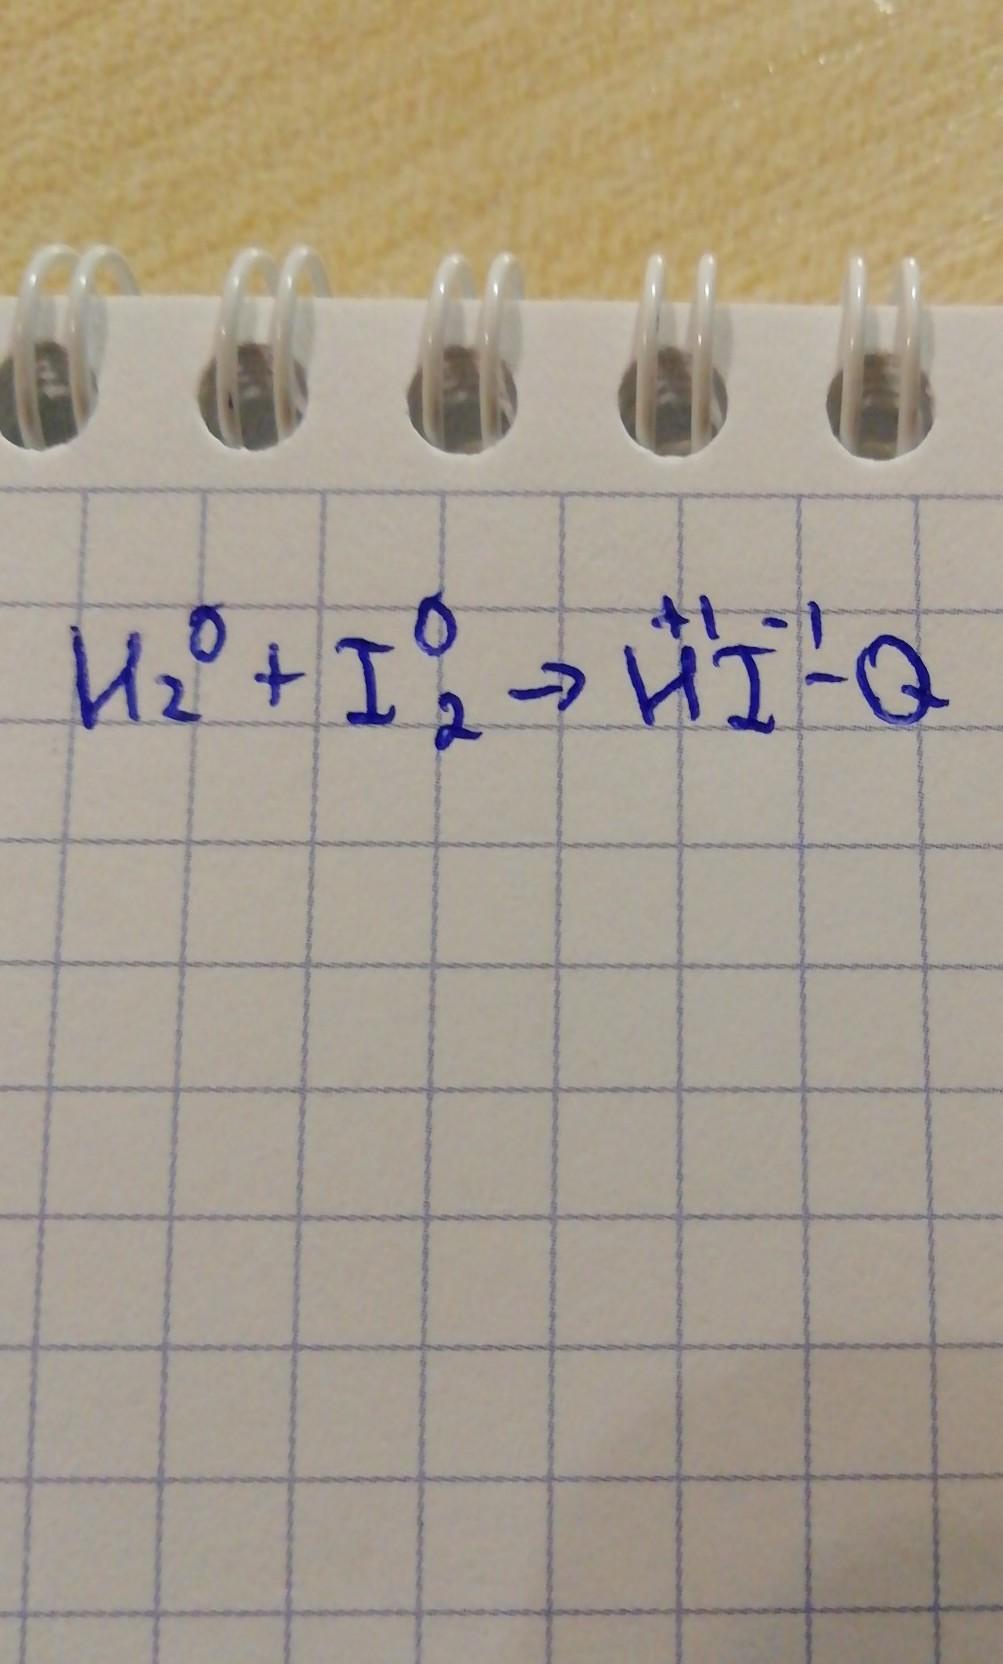 H₂⁰ + I₂⁰ → H⁺¹I⁻¹ - Q